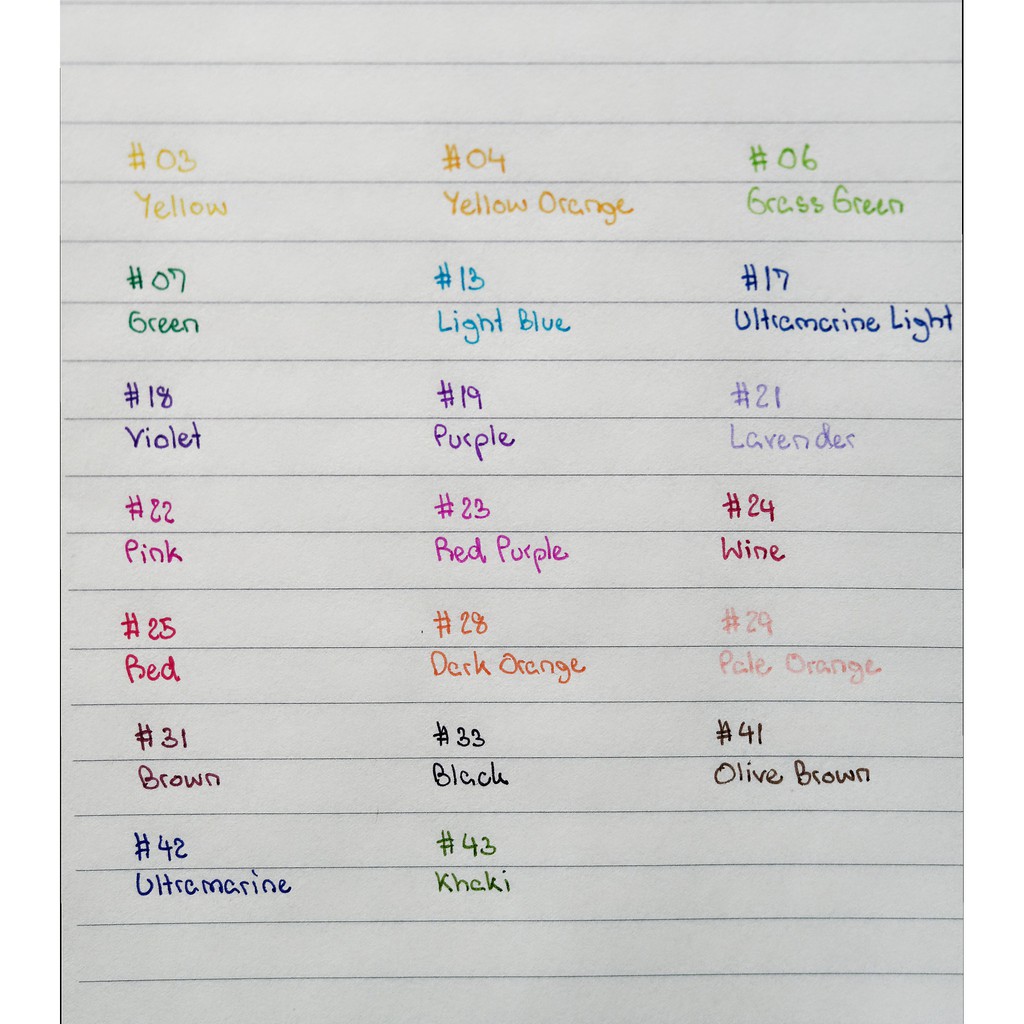 #03 #04 #06
Yellow Yellow Orange Grass Green
#07 #13 #17
Green Light Blue Ultramarine Light
#18 #19 #21
Violet Purple Lavender
#22 #23 #24
Pink Red Purple Wine
#25 #28 #29
Red Dark Orange Pale Orange
#31 #33 #41
Brown Black Olive Brown
#42 #43
Ultramarine Khaki